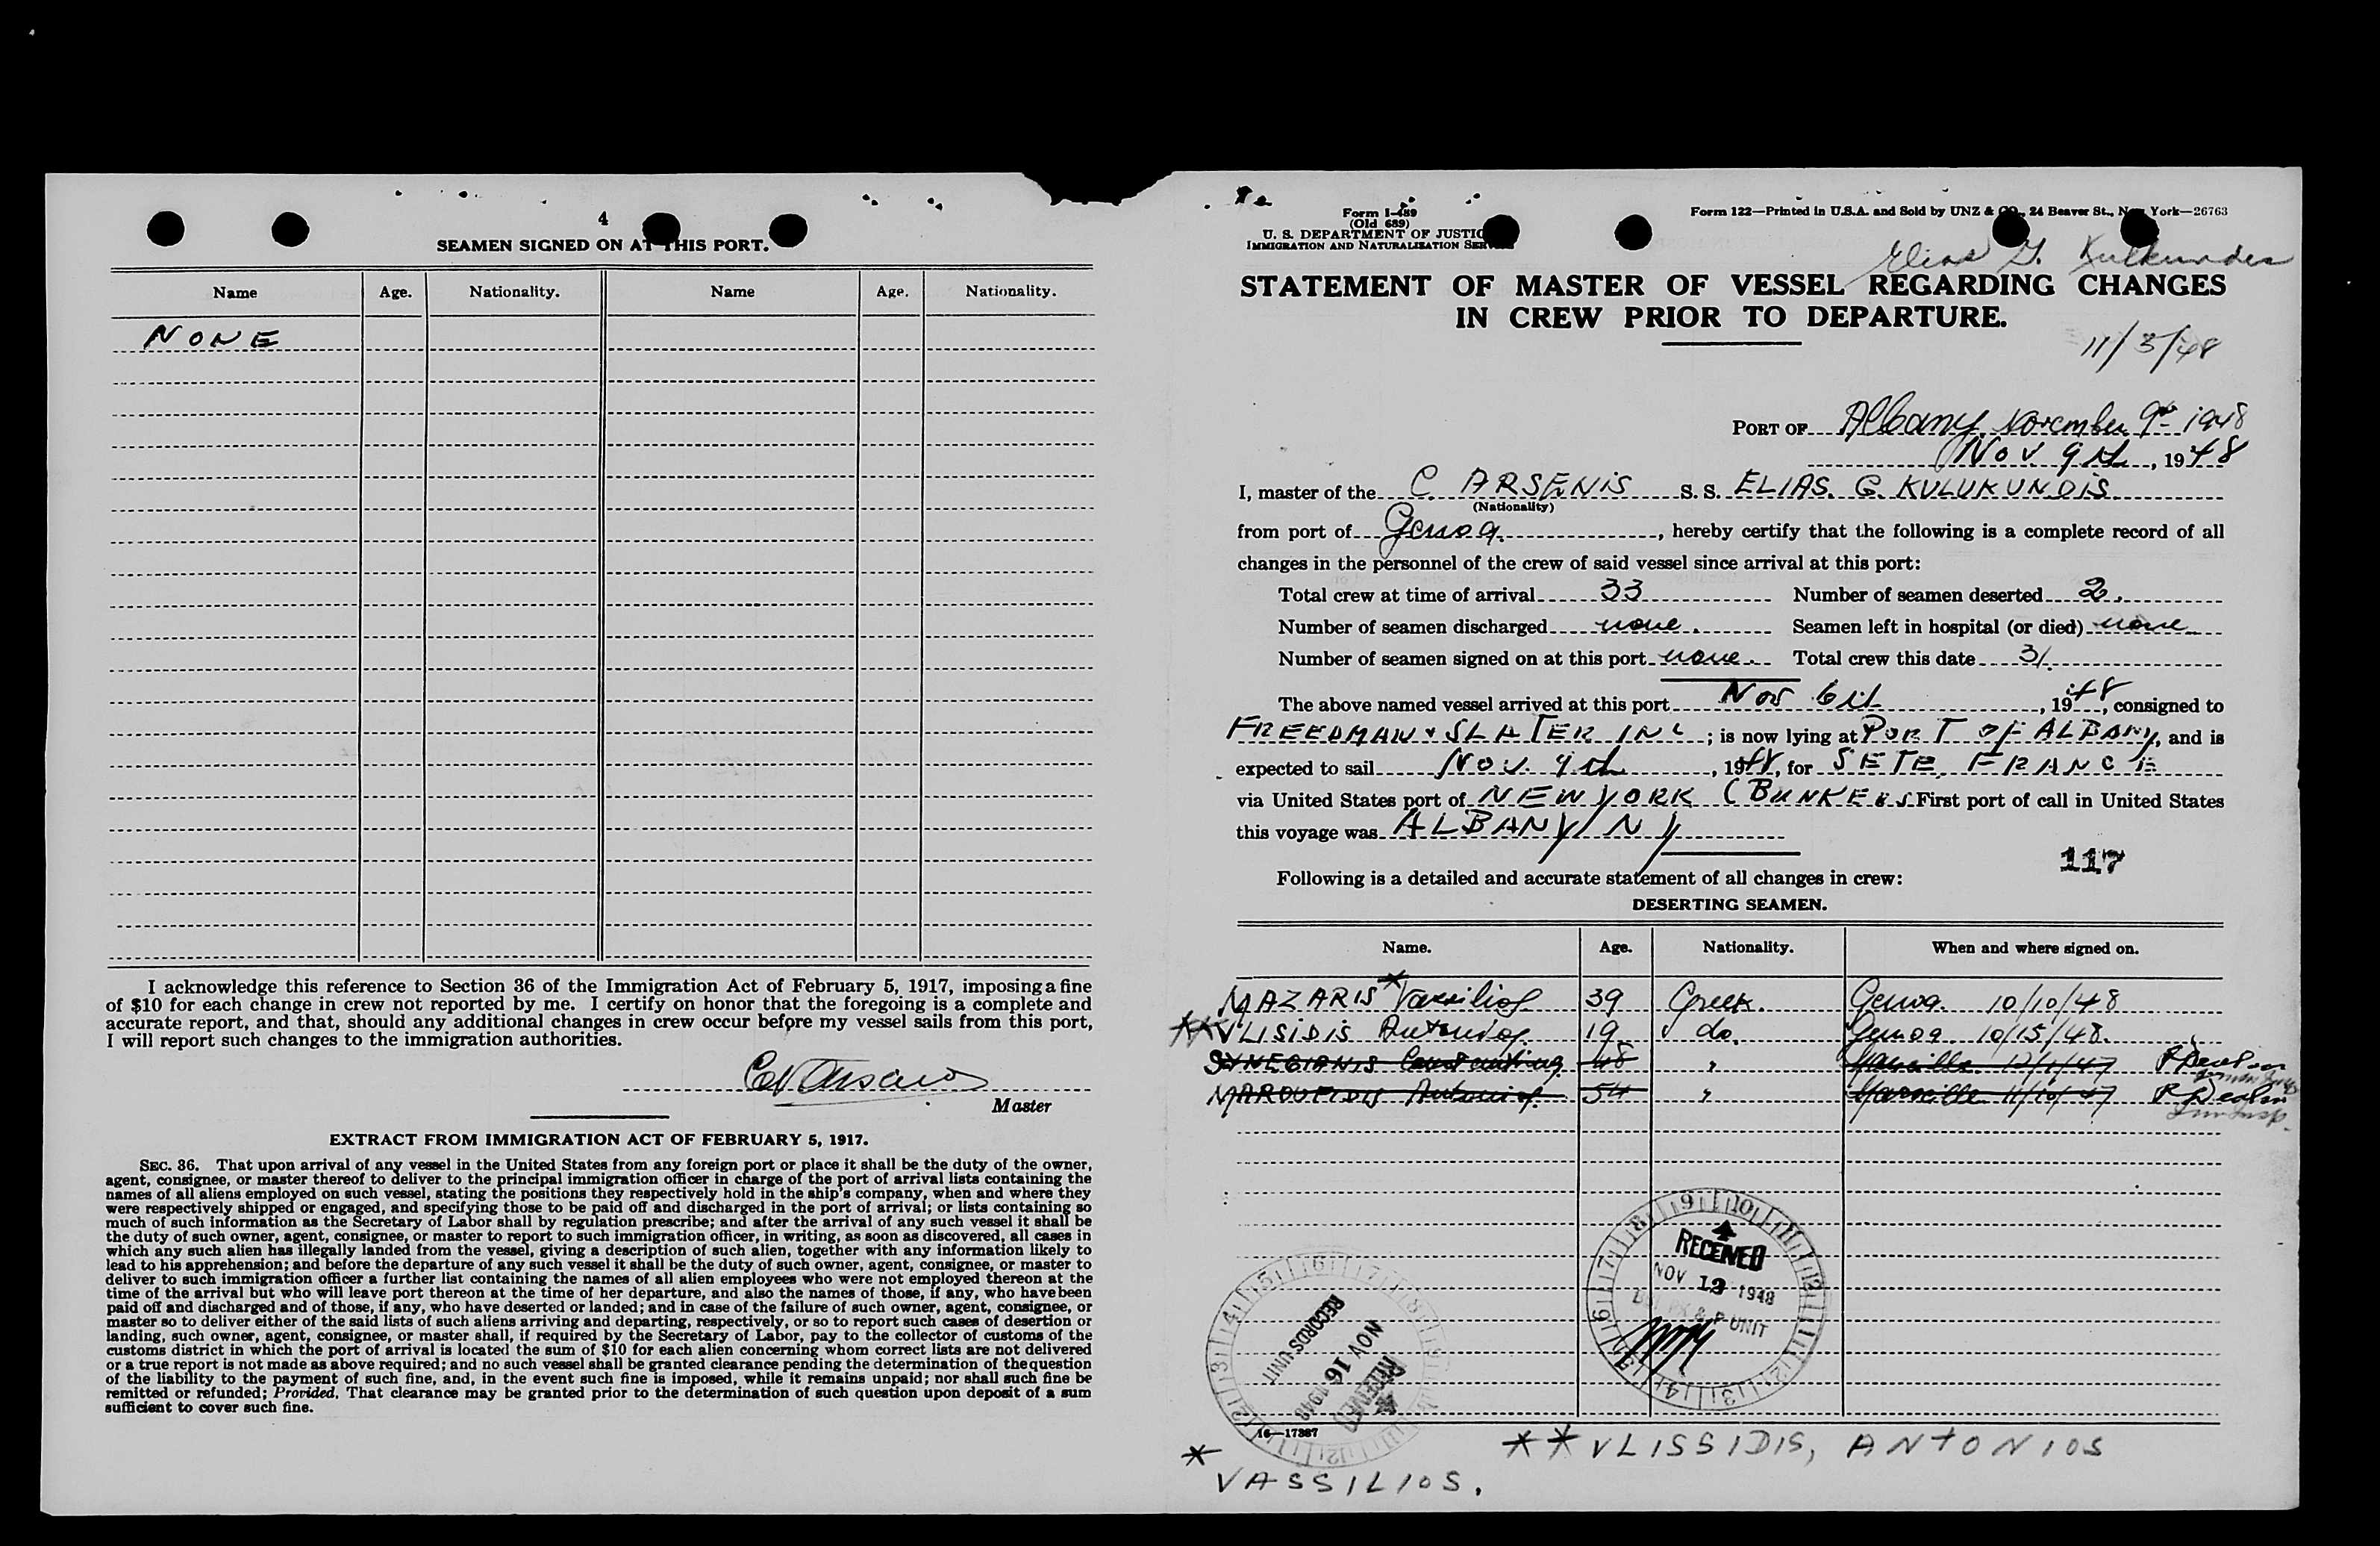 4
SEAMEN SIGNED ON AT THIS PORT.
Name Age. Nationality. Name Age. Nationality.
NONE
I acknowledge this reference to Section 36 of the Immigration Act of February 5, 1917, imposing a fine
of $10 for each change in crew not reported by me. I certify on honor that the foregoing is a complete and
accurate report, and that, should any additional changes in crew occur before my vessel sails from this port,
I will report such changes to the immigration authorities.
Master
EXTRACT FROM IMMIGRATION ACT OF FEBRUARY 5, 1917.
SEC. 36. That upon arrival of any vessel in the United States from any foreign port or place it shall be the duty of the owner,
agent, consignee, or master thereof to deliver to the principal immigration officer in charge of the port of arrival lists containing the
names of all aliens employed on such vessel, stating the positions they respectively hold in the ship's company, when and where they
were respectively shipped or engaged, and specifying those to be paid off and discharged in the port of arrival; or lists containing so
much of such information as the Secretary of Labor shall by regulation prescribe; and after the arrival of any such vessel it shall be
the duty of such owner, agent, consignee, or master to report to such immigration officer, in writing, as soon as discovered, all cases in
which any such alien has illegally landed from the vessel, giving a description of such alien, together with any information likely to
lead to his apprehension; and before the departure of any such vessel it shall be the duty of such owner, agent, consignee, or master to
deliver to such immigration officer a further list containing the names of all alien employees who were not employed thereon at the
time of the arrival but who will leave port thereon at the time of her departure, and also the names of those, if any, who have been
paid off and discharged and of those, if any, who have deserted or landed; and in case of the failure of such owner, agent, consignee, or
master so to deliver either of the said lists of such aliens arriving and departing, respectively, or so to report such cases of desertion or
landing, such owner, agent, consignee, or master shall, if required by the Secretary of Labor, pay to the collector of customs of the
customs district in which the port of arrival is located the sum of $10 for each alien concerning whom correct lists are not delivered
or a true report is not made as above required; and no such vessel shall be granted clearance pending the determination of the question
of the liability to the payment of such fine, and, in the event such fine is imposed, while it remains unpaid; nor shall such fine be
remitted or refunded; Provided, That clearance may be granted prior to the determination of such question upon deposit of a sum
sufficient to cover such fine.
Form I-489
(Old 689)
U. S. DEPARTMENT OF JUSTIC
IMMIGRATION AND NATURALIZATION SER
Form 122—Printed in U.S.A. and Sold by UNZ & CO., 24 Beaver St., New York—26763
Elias G. Kulkundis
STATEMENT OF MASTER OF VESSEL REGARDING CHANGES
IN CREW PRIOR TO DEPARTURE.
11/3/48
PORT OF Albany November 9th 1948
Nov 9th, 1948
I, master of the C. ARSENIS S. S. ELIAS. G. KULUKUNDIS
(Nationality)
from port of Genoa, hereby certify that the following is a complete record of all
changes in the personnel of the crew of said vessel since arrival at this port:
Total crew at time of arrival 33 Number of seamen deserted 2.
Number of seamen discharged none. Seamen left in hospital (or died) none
Number of seamen signed on at this port none. Total crew this date 31.
The above named vessel arrived at this port Nov 6th, 1948, consigned to
FREEDMAN & SLATER INC; is now lying at PORT OF ALBANY, and is
expected to sail Nov. 9th, 1948, for SETE FRANCE
via United States port of NEW YORK (BUNKERS First port of call in United States
this voyage was ALBANY N Y
117
Following is a detailed and accurate statement of all changes in crew:
DESERTING SEAMEN.
Name. Age. Nationality. When and where signed on.
MAZARIS * Vassilios. 39 Greek. Genoa. 10/10/48
**VLISIDIS Antonios. 19 do. Genoa 10/15/48.
SYNEGIANIS Constantinos 48 " Marseille 12/1/47
MAROUFIDIS Antonios. 54 " Marseille 11/10/47
9 10 11 12 1 2 3 4 5 6 7 8
RECEIVED
NOV 13 1948
P UNIT
RECORDS UNIT
NOV 16 1948
RECEIVED
16—17387
** VLISSIDIS, ANTONIOS
*
VASSILIOS.